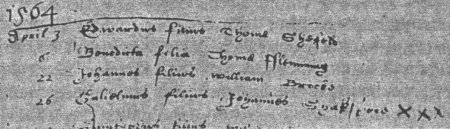 1564
April 3 Edwardus filius Thome Shepek
6 Benedicta filia Thome Fflemming
22 Johannes filius William Brooks
26 Gulielmus filius Johannes Shakspere XXX